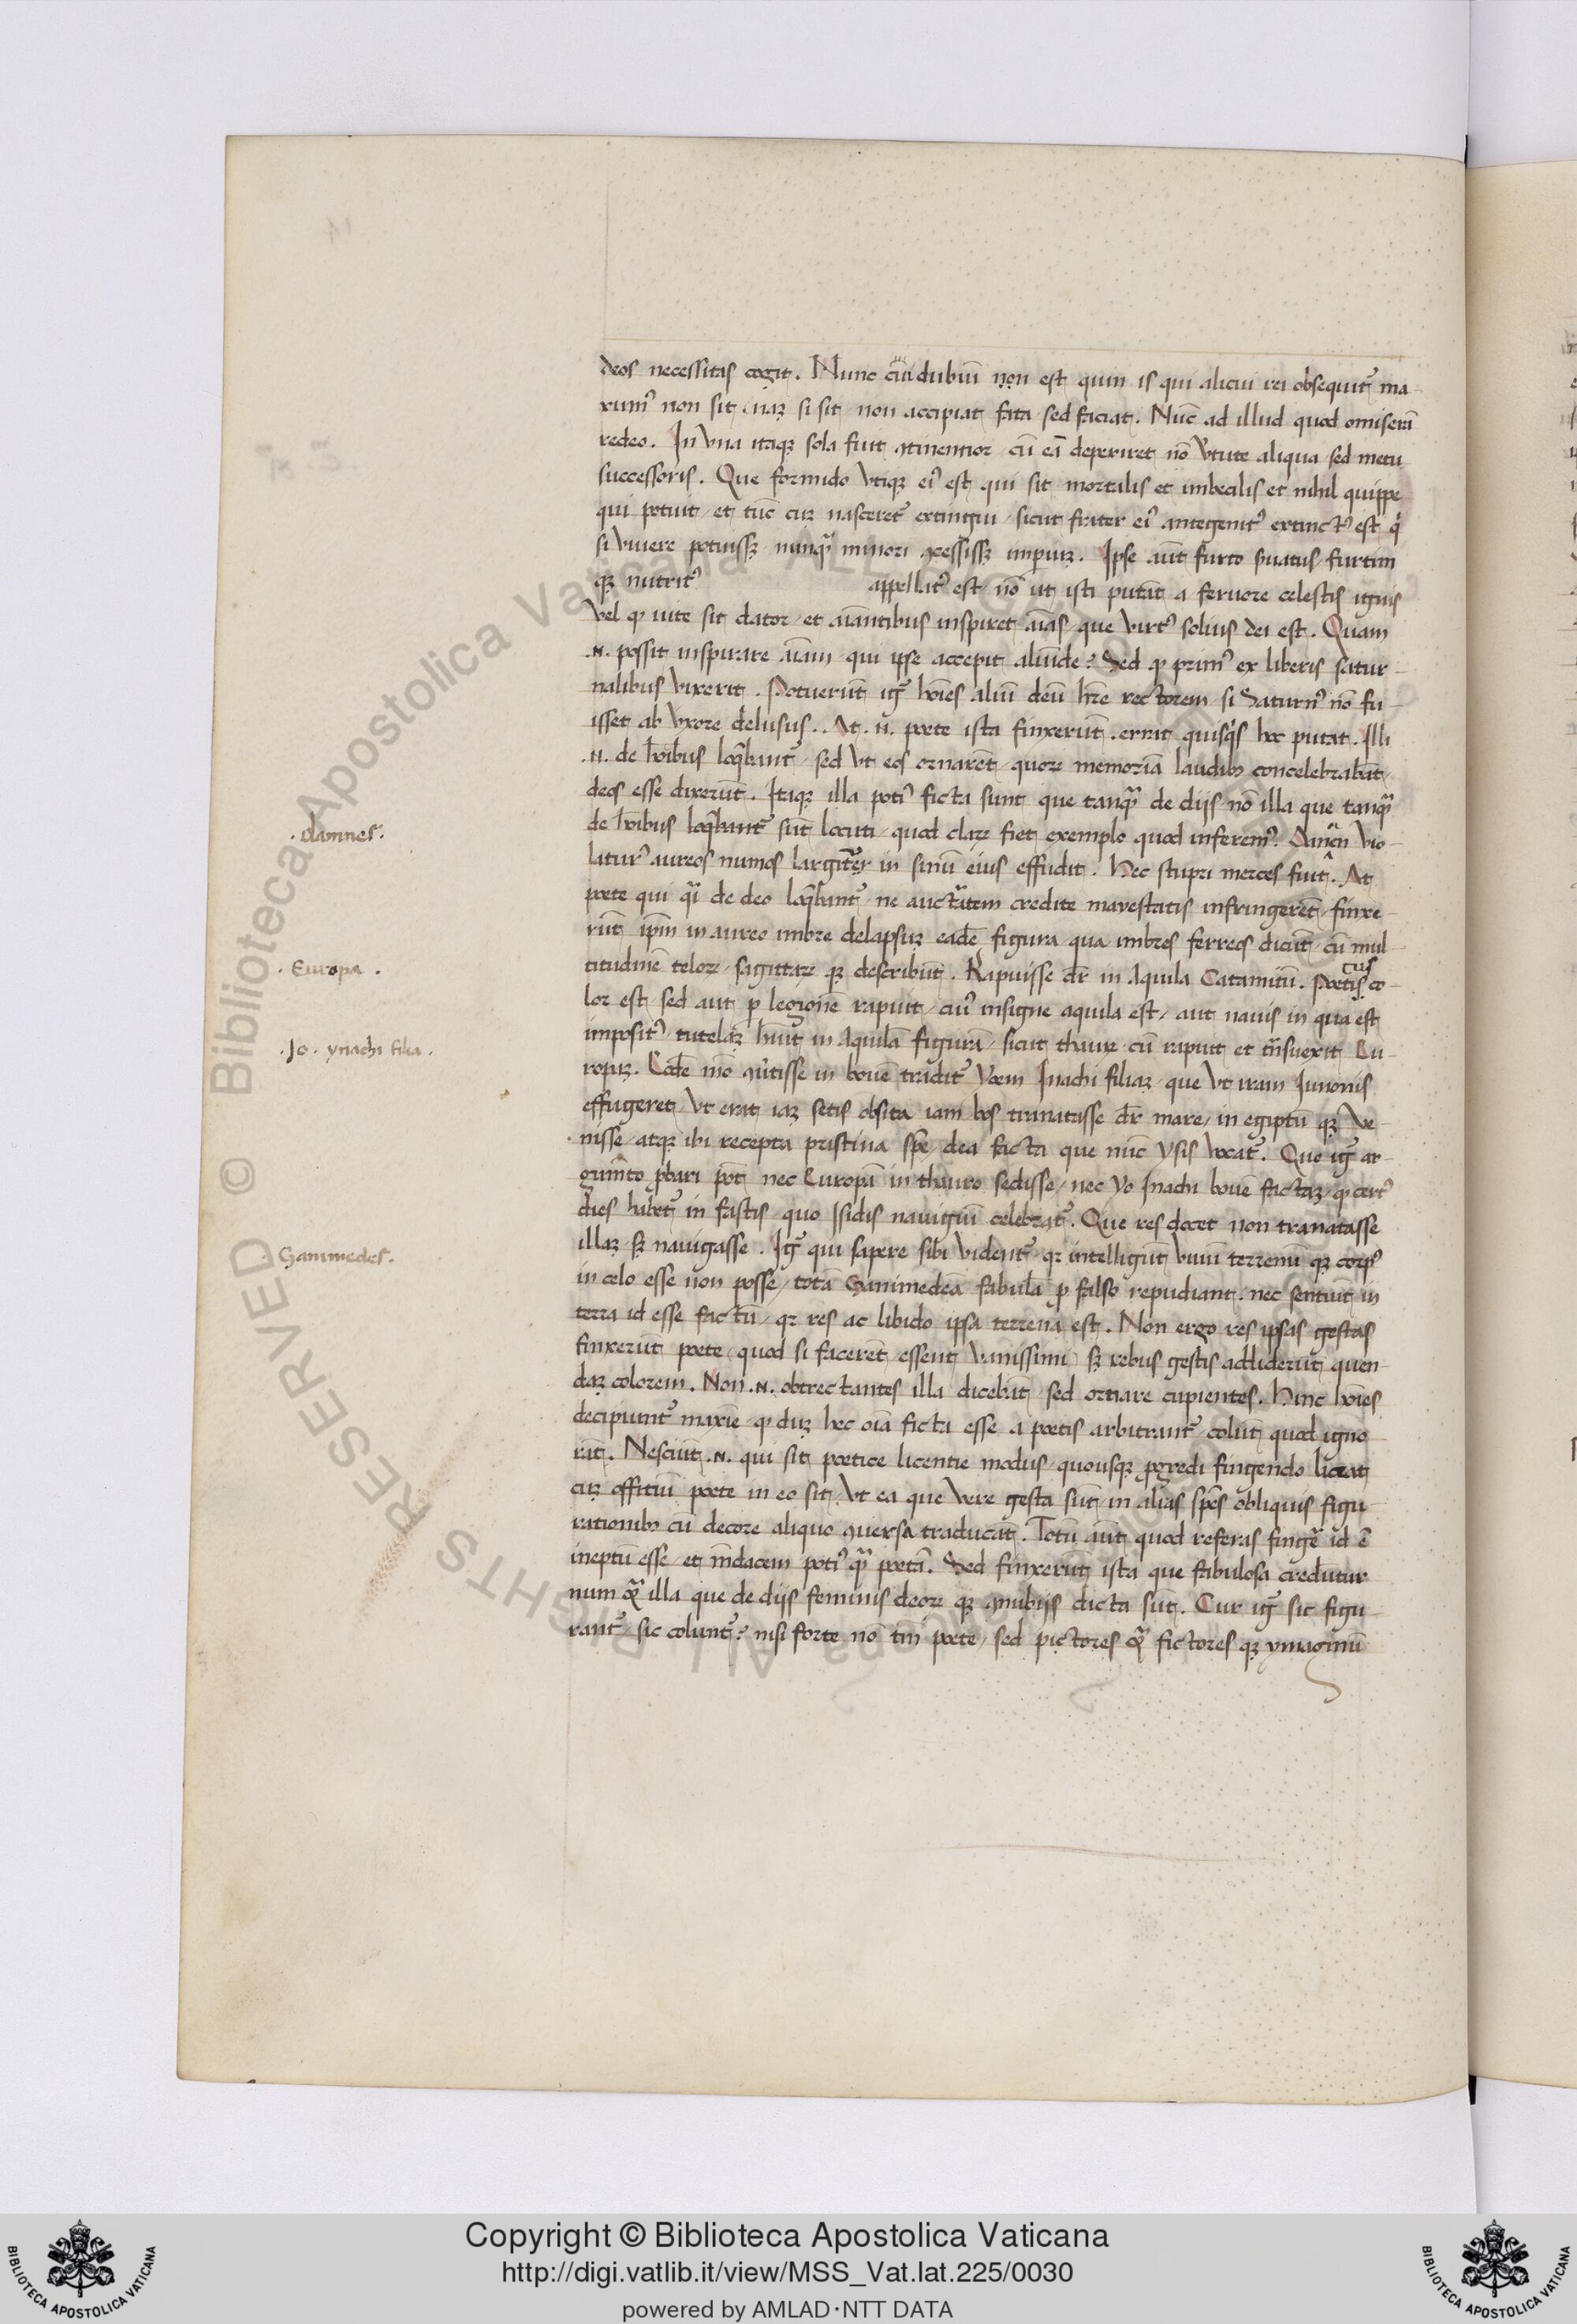 deos necessitas cogit. Nunc cui dubiũ non est quin is qui alicui rei obsequit᷑ ma-
ximꝰ non sit. naꝫ si sit non accipiat fata sed faciat. Nũc ad illud quod omiserã
redeo. In una itaqꝫ sola fuit ꝯtinentior cũ eã deperiret nõ v̾tute aliqua sed metu
successoris. Que formido vtiqꝫ eiꝰ est qui sit mortalis et imbecilis et nihil quippe
qui potuit et tũc cuꝫ nasceret᷑ extingui sicut frater eiꝰ antegenitꝰ extinctꝰ est q̇
si vivere potuissꝫ nũnqꝫ minori ꝯcessissꝫ imperiuꝫ. Ipse aũt furto s̾uatus furtim
qꝫ nutritꝰ appellatꝰ est nõ ut isti putãt a fervore celestis ignis
vel ꝙ uite sit dator et aĩantibus inspiret aĩas que virtꝰ solius dei est. Quam
.n. possit inspirare aĩam qui ipse accepit aliũde? Sed ꝙ primꝰ ex liberis satur-
nalibus vixerit. Potuerũt ig̃ hoĩes aliũ deũ hr̃e rectorem si Saturnꝰ nõ fu-
isset ab vxore delusus. At .n. poete ista finxerũt. errat quisq̇s hoc putat. Illi
.n. de hoĩbus loq̃bant᷑ sed vt eos ornarẽt quoꝝ memoriã laudibꝫ concelebrabãt
deos esse dixerũt. Itaqꝫ illa potiꝰ ficta sunt que tanqꝫ de dijs nõ illa que tanqꝫ
de hoĩbus loq̃bant᷑ sũt locuti quod claꝝ fiet exemplo quod inferemꝰ. Danẽn vio-
laturꝰ aureos numos largiter in sinũ eius effudit. Hec stupri merces fuit. At
poete qui q̃i de deo loq̃bant᷑ ne auctãtem credite maiestatis infringerẽt finxe-
rũt ip̃m in aureo imbre delapsuꝫ eadẽ figura qua imbres ferreos dicũt cũ mul-
titudinẽ teloꝝ sagittaꝝ qꝫ describũt. Rapuisse dr̃ in Aquila Catamitũ. Poeticus co-
lor est sed aut ꝑ legionẽ rapuit cuiꝰ insigne aquila est aut navis in qua est
impositꝰ tutelaꝫ hũit in Aquilã figurã sicut thaurꝝ cũ rapuit et tñsuexit Eu-
ropaꝫ. Eodẽ mõ ꝯũtisse in bouẽ tradit᷑ Yoem Inachi filiaꝫ que vt iram Junonis
effugeret vt erat iaꝫ setis obsita iam bos tranatasse dr̃ mare in egiptũ qꝫ ve-
nisse atqꝫ ibi recepta pristina sp̃e dea facta que nũc ysis vocat᷑. Quo ig̃ ar-
gum̃to p̃bari põt nec Europã in thauro sedisse nec Yo Inachi bouẽ factaꝫ ꝙ certꝰ
dies habet᷑ in fastis quo Isidis nauigiũ celebrat᷑. Que res docet non tranatasse
illaꝫ sꝫ nauigasse. Ig̃ qui sapere sibi vident᷑ qꝫ intelligũt vivũ terrenũ qꝫ corpꝰ
in celo esse non posse totã Ganimedeã fabulã ꝓ falso repudiant nec sentiũt in
terra id esse factũ qꝫ res ac libido ipsa terrena est. Non ergo res ipsas gestas
finxerũt poete quod si facerẽt essent vanissimi sꝫ rebus gestis addiderũt quen-
daꝫ colorem. Non .n. obtrectantes illa dicebãt sed ornare cupientes. Hinc hoĩes
decipiunt᷑ maxĩe ꝙ duꝫ hec oĩa ficta esse a poetis arbitrant᷑ colũt quod igno-
rãt. Nesciũt .n. qui sit poetice licentie modus quousqꝫ ꝓgredi fingendo liceat
cuꝫ offitiũ poete in eo sit vt ea que vere gesta sũt in alias sp̃es obliquis figu-
rationibꝫ cũ decore aliquo ꝯuersa traducãt. Totũ aũt quod referas fing̃e id ẽ
ineptũ esse et mẽdacem potiꝰ qꝫ poetã. Sed finxerũt ista que fabulosa credũtur
num qꝫ illa que de dijs feminis deoꝝ qꝫ ꝯnubijs dicta sũt. Cur ig̃ sic figu-
rant᷑ sic colunt᷑? nisi forte nõ tm̃ poete sed pictores qꝫ fictores qꝫ ymaginũ
.Dannes.
.Europa.
.Jo. ynachi filia.
.Ganimedes.
BIBLIOTECA APOSTOLICA VATICANA
Copyright © Biblioteca Apostolica Vaticana
http://digi.vatlib.it/view/MSS_Vat.lat.225/0030
powered by AMLAD·NTT DATA
BIBLIOTECA APOSTOLICA VATICANA